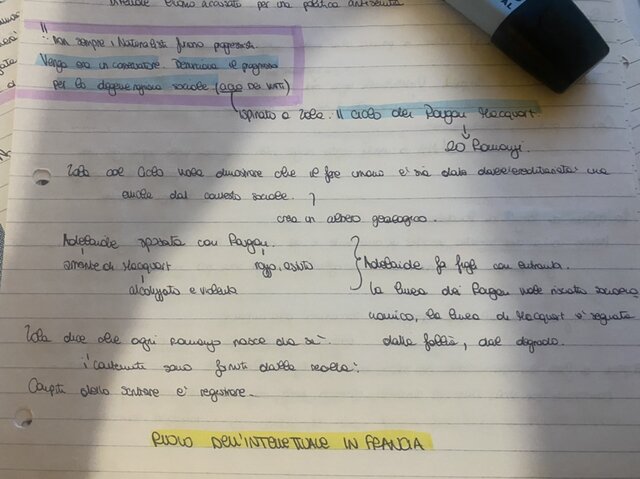 erano accusato per una politica antisemita
!! Non sempre i Naturalisti furono progressisti.
Verga era un conservatore. Denunciava il progresso
per la degenerazione sociale (CICLO DEI VINTI)
ispirato a Zola. Il ciclo dei Rougon Macquart
20 Romanzi.
Zola col Ciclo vuole dimostrare che il fare umano è sia dato dall'ereditarietà ma
anche dal contesto sociale.
crea un albero genealogico.
Adelaide sposata con Rougon
amante di Macquart rozzo, astuto
alcolizzato e violento
Adelaide fa figli con entrambi.
la linea dei Rougon vuole riscatto socioeco
nomico, la linea di Macquart è segnata
dalla follia, dal degrado.
Zola dice che ogni romanzo nasce da sé.
i contenuti sono forniti dalla realtà.
Compito dello scrittore è registrare.
RUOLO DELL'INTELLETTUALE IN FRANCIA